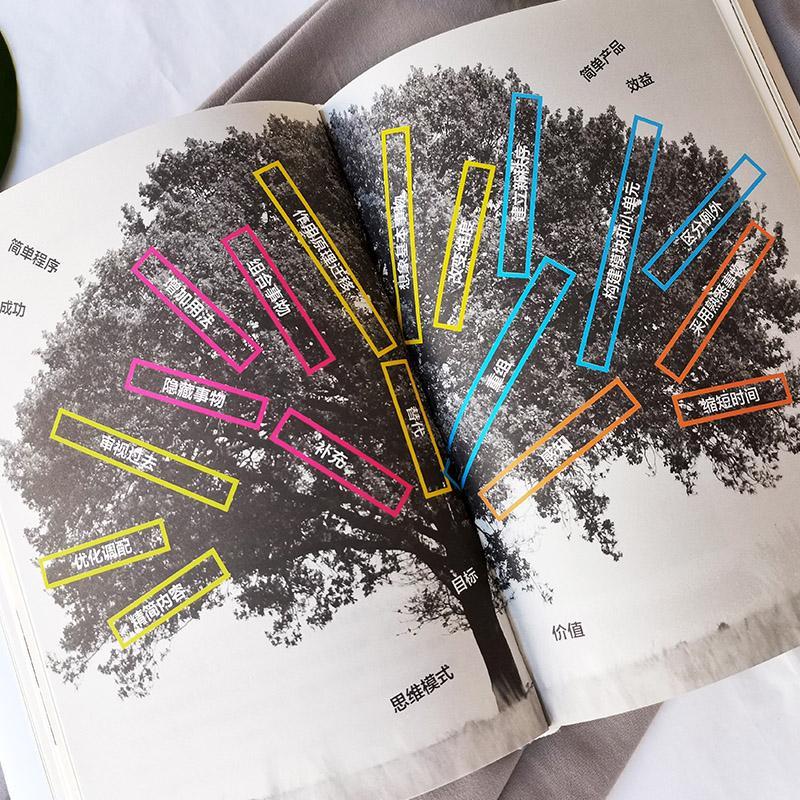 简单程序
成功
增加用法
组合事物
作用原理迁移
隐藏事物
补充
审视过去
优化调配
精简内容
思维模式
目标
替代
改变维度
建立新秩序
重组
构建模块和小单元
区分例外
采用熟悉事物
缩短时间
感知
简单产品
效益
价值